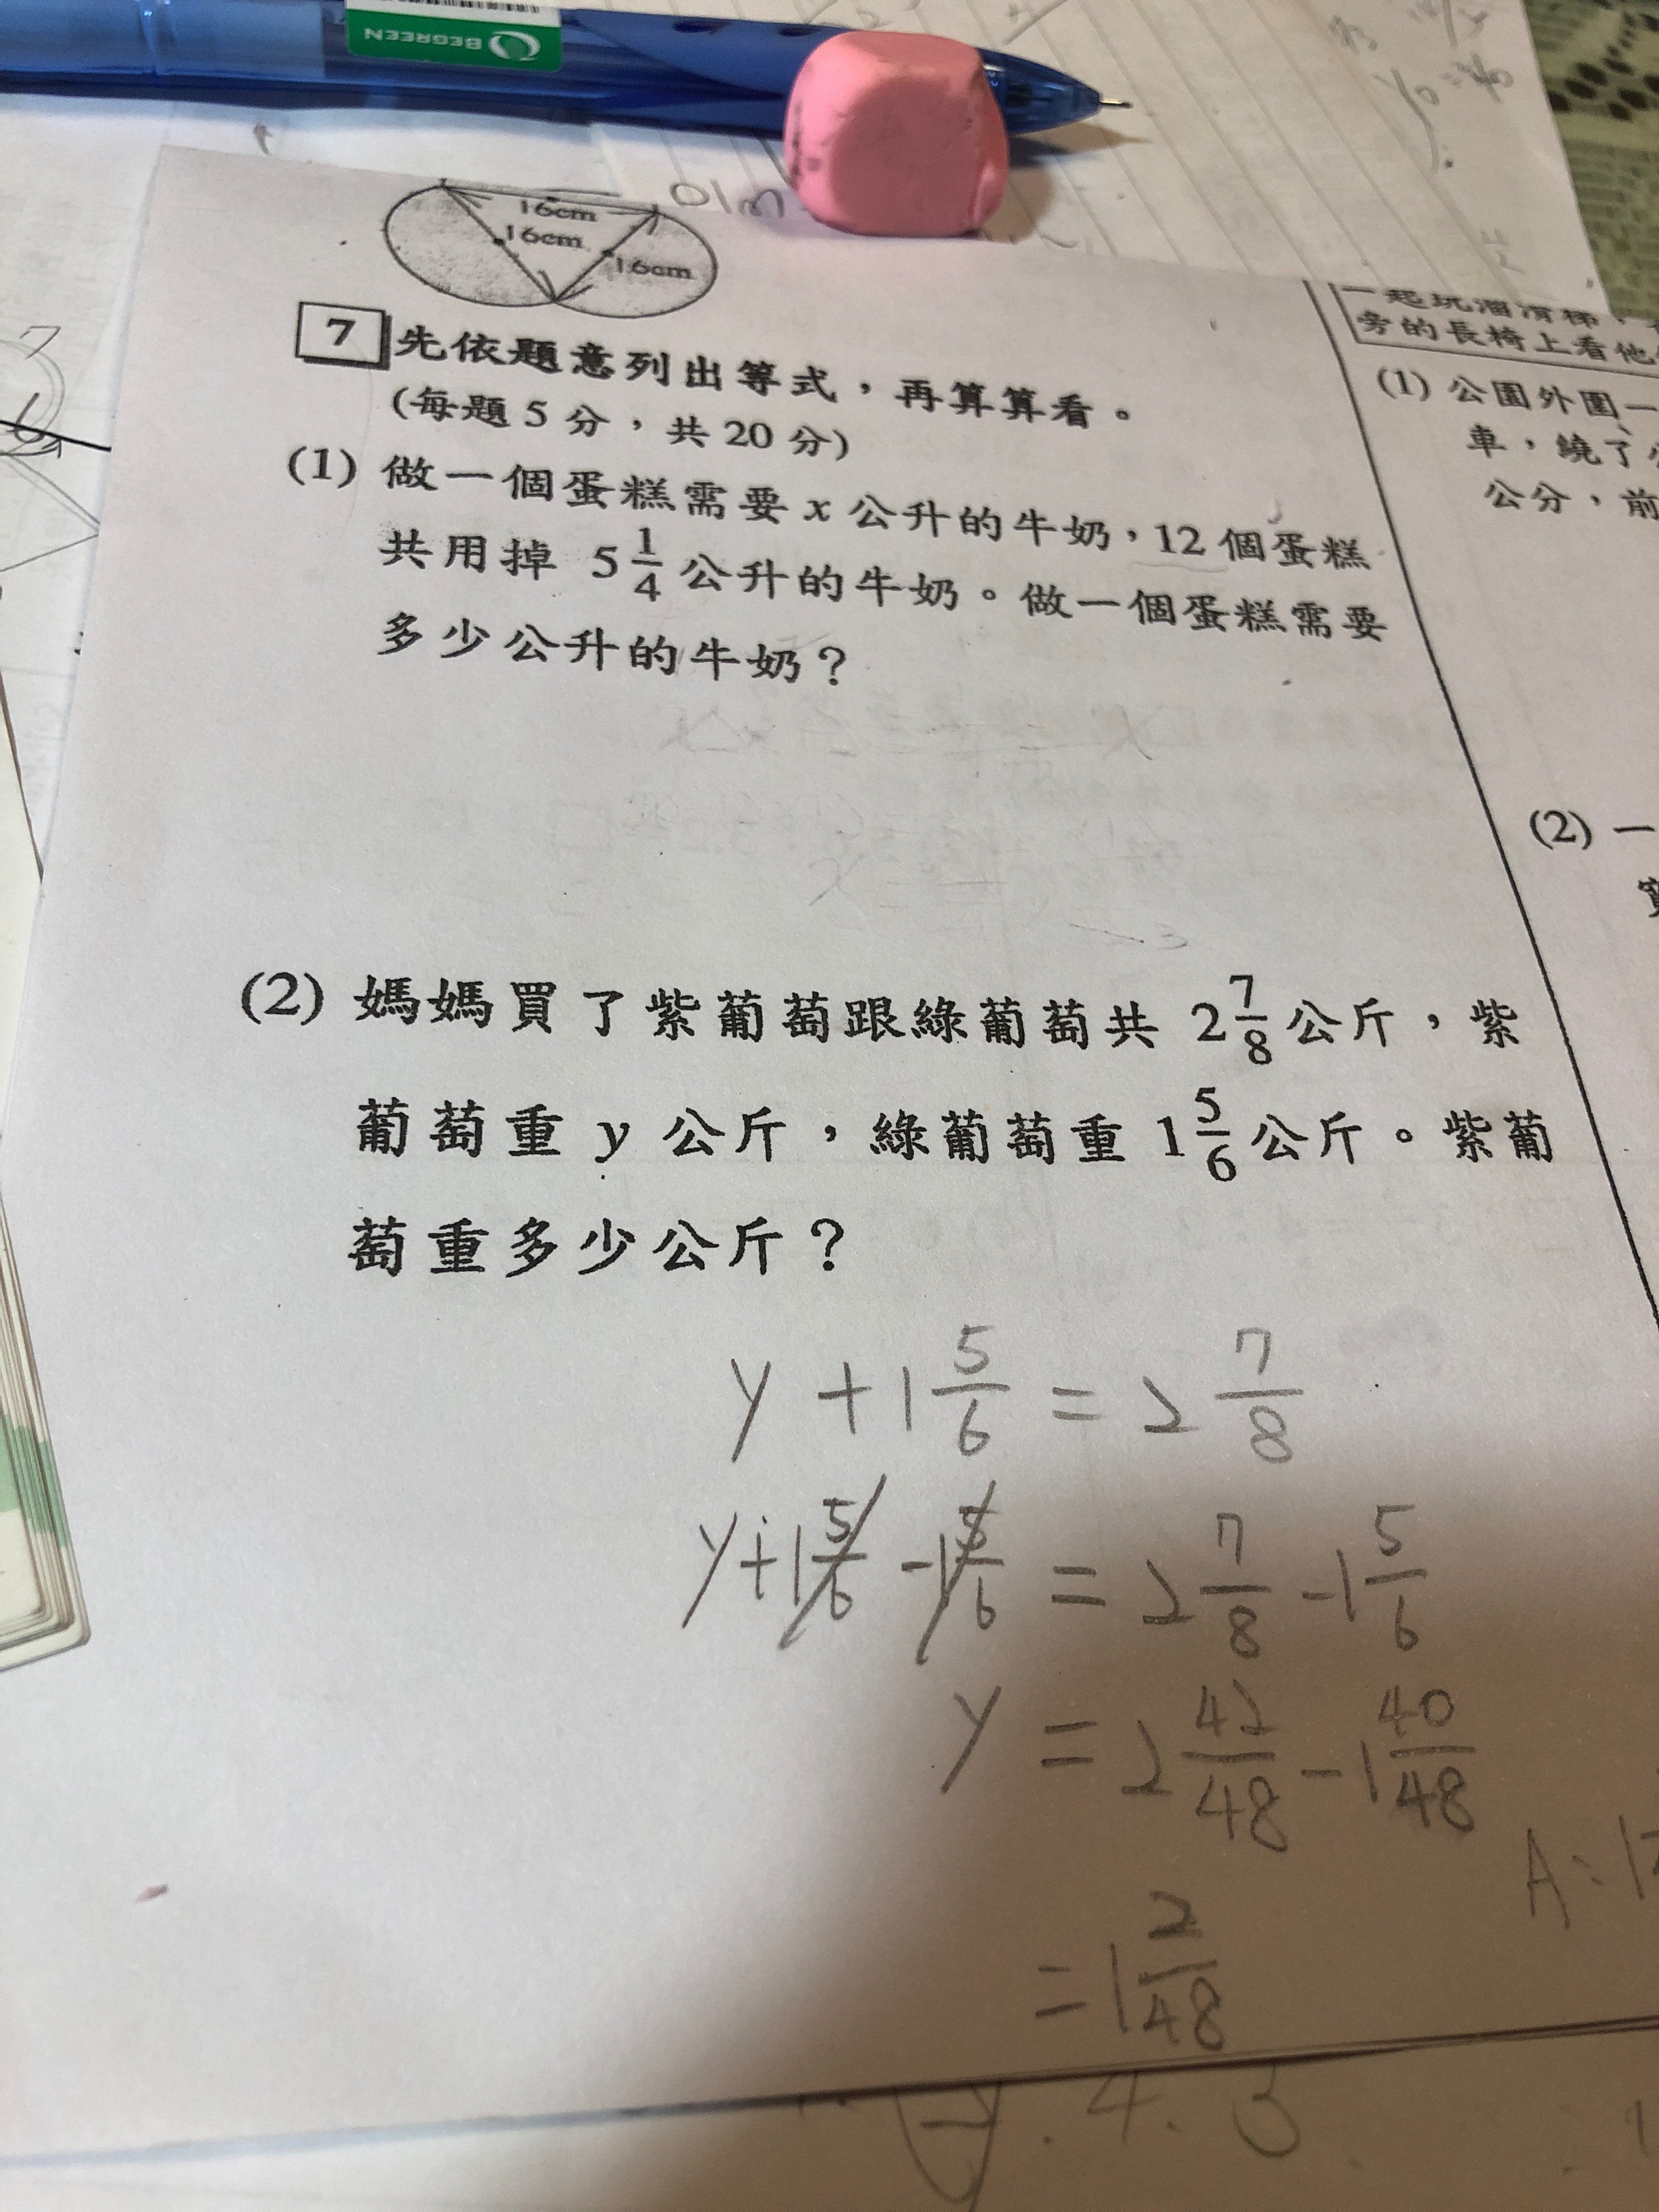 BEGREEN
16cm
16cm
16cm
7 先依題意列出等式，再算算看。
(每題5分，共20分)
(1) 做一個蛋糕需要 x 公升的牛奶，12 個蛋糕
共用掉 5 1/4 公升的牛奶。做一個蛋糕需要
多少公升的牛奶？
(2) 媽媽買了紫葡萄跟綠葡萄共 2 7/8 公斤，紫
葡萄重 y 公斤，綠葡萄重 1 5/6 公斤。紫葡
萄重多少公斤？
y + 1 5/6 = 2 7/8
y + 1 5/6 - 1 5/6 = 2 7/8 - 1 5/6
y = 2 42/48 - 1 40/48
= 1 2/48
A : 1
一起玩溜滑梯，
旁的長椅上看他
(1) 公園外圍一
車，繞了
公分，前
(2) 一
4.3